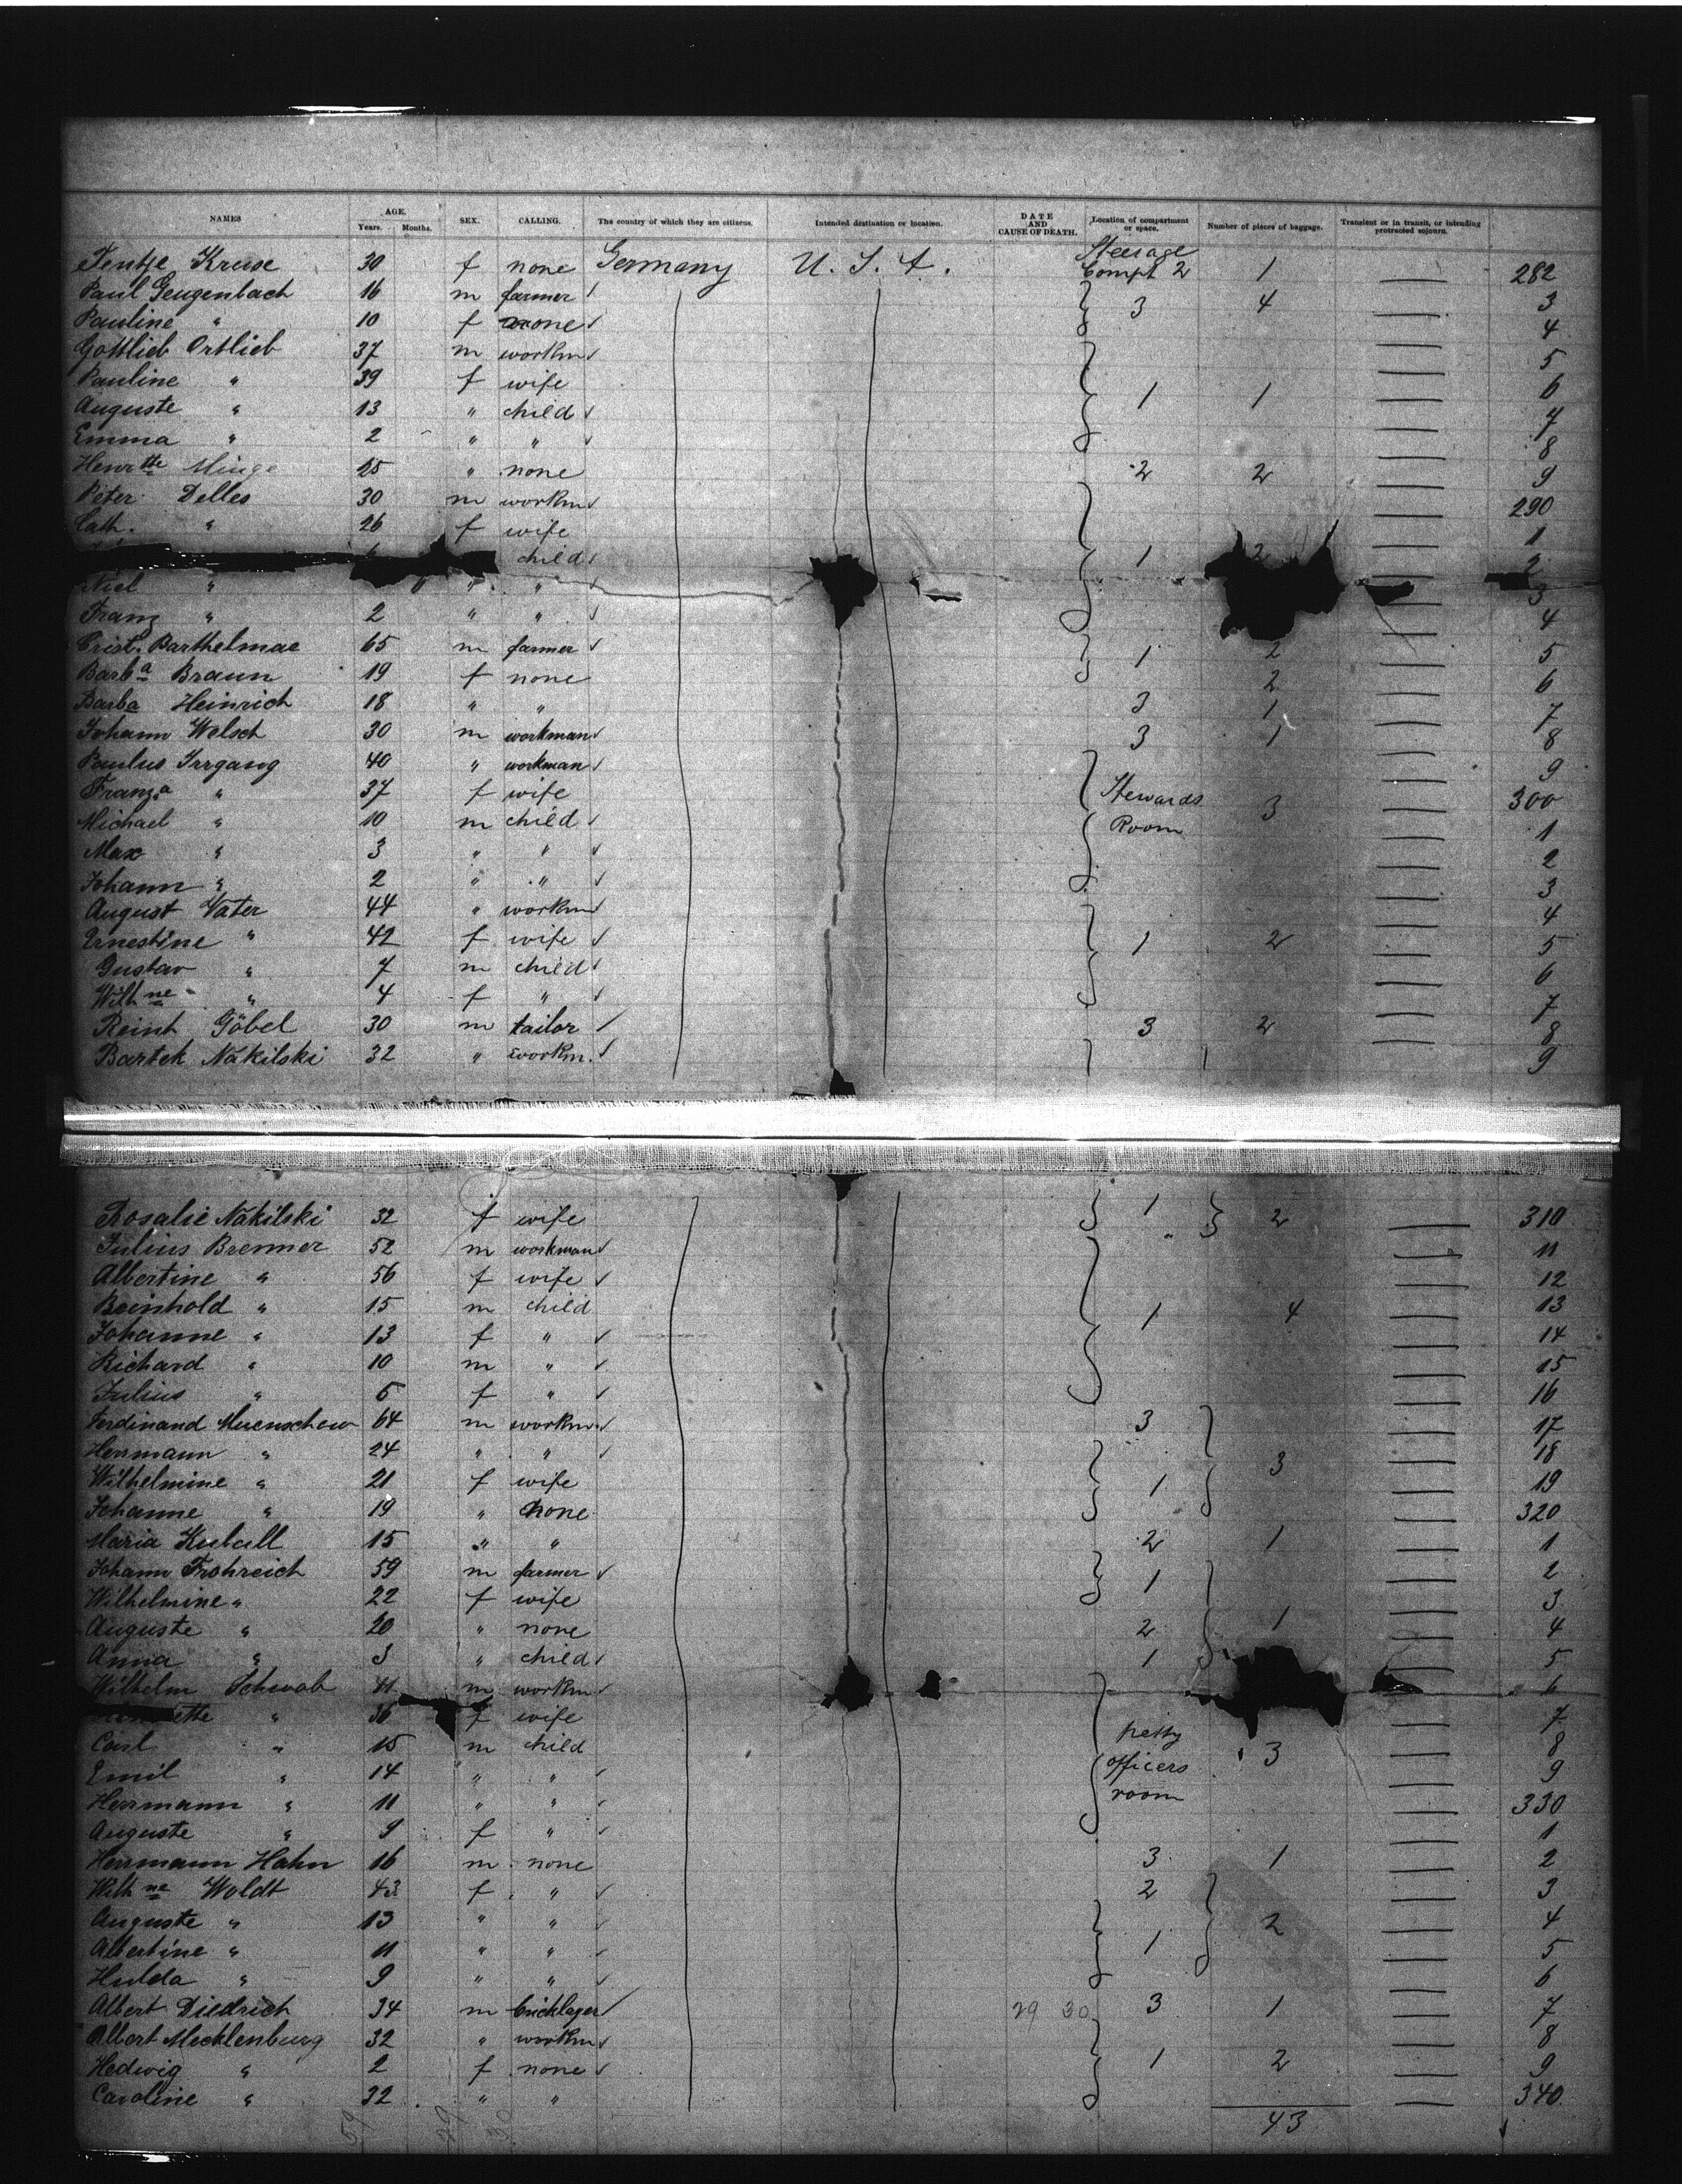 NAMES AGE. Years. Months. SEX. CALLING. The country of which they are citizens. Intended destination or location. DATE AND CAUSE OF DEATH. Location of compartment or space. Number of pieces of baggage. Transient or in transit, or intending protracted sojourn.
Tentje Kruse 30 f none Germany U. S. A. Steerage Compt 2 1 — 282
Paul Gengenbach 16 m farmer 3 4 — 3
Pauline " 10 f none — 4
Gottlieb Ortlieb 37 m workm — 5
Pauline " 39 f wife 1 1 — 6
Auguste " 13 " child — 7
Emma " 2 " " — 8
Henrtte Minge 25 " none 2 2 — 9
Peter Delles 30 m workm — 290
Cath. " 26 f wife — 1
child 1 2 — 2
Nicl " " " — 3
Franz " 2 " " — 4
Crist. Barthelmae 65 m farmer 1 2 — 5
Barba Braun 19 f none 2 — 6
Barba Heinrich 18 " " 3 1 — 7
Johann Welsch 30 m workman 3 1 — 8
Paulus Irrgang 40 " workman — 9
Franza " 37 f wife Stewards 3 — 300
Michael " 10 m child Room — 1
Max " 3 " " — 2
Johann " 2 " " — 3
August Vater 44 " workm — 4
Ernestine " 42 f wife 1 2 — 5
Gustav " 7 m child — 6
Wilhne " 4 f " — 7
Reinh Göbel 30 m tailor 3 2 — 8
Bartek Nakilski 32 " workm. — 9
Rosalie Nakilski 32 f wife 1 2 — 310
Julius Bremer 52 m workman — 11
Albertine " 56 f wife — 12
Reinhold " 15 m child 1 4 — 13
Johanne " 13 f " — 14
Richard " 10 m " — 15
Julius " 5 f " — 16
Ferdinand Muenschow 64 m workm. 3 — 17
Herrmann " 24 " " 3 — 18
Wilhelmine " 21 f wife 1 — 19
Johanne " 19 " none — 320
Maria Kuball 15 " " 2 1 — 1
Johann Frohreich 59 m farmer 1 — 2
Wilhelmine " 22 f wife — 3
Auguste " 20 " none 2 1 — 4
Anna " 3 " child 1 — 5
Wilhelm Schwab 41 m workm — 6
ette " 36 f wife petty — 7
Carl " 15 m child 3 — 8
Emil " 14 " " officers — 9
Herrmann " 11 " " room — 330
Auguste " 9 f " — 1
Herrmann Hahn 16 m none 3 1 — 2
Wilhne Woldt 43 f " 2 — 3
Auguste " 13 " " 2 — 4
Albertine " 11 " " 1 — 5
Hulda " 9 " " — 6
Albert Diedrich 34 m bricklayer 29 30 3 1 — 7
Albert Mecklenburg 32 " workm — 8
Hedwig " 2 f none 1 2 — 9
Caroline " 32 " " — 340
59 29 30 43